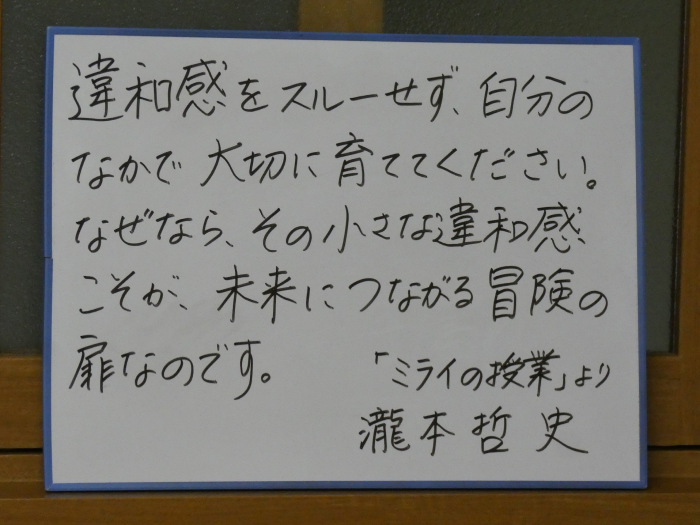 違和感をスルーせず、自分の
なかで大切に育ててください。
なぜなら、その小さな違和感
こそが、未来につながる冒険の
扉なのです。
「ミライの授業」より
瀧本哲史